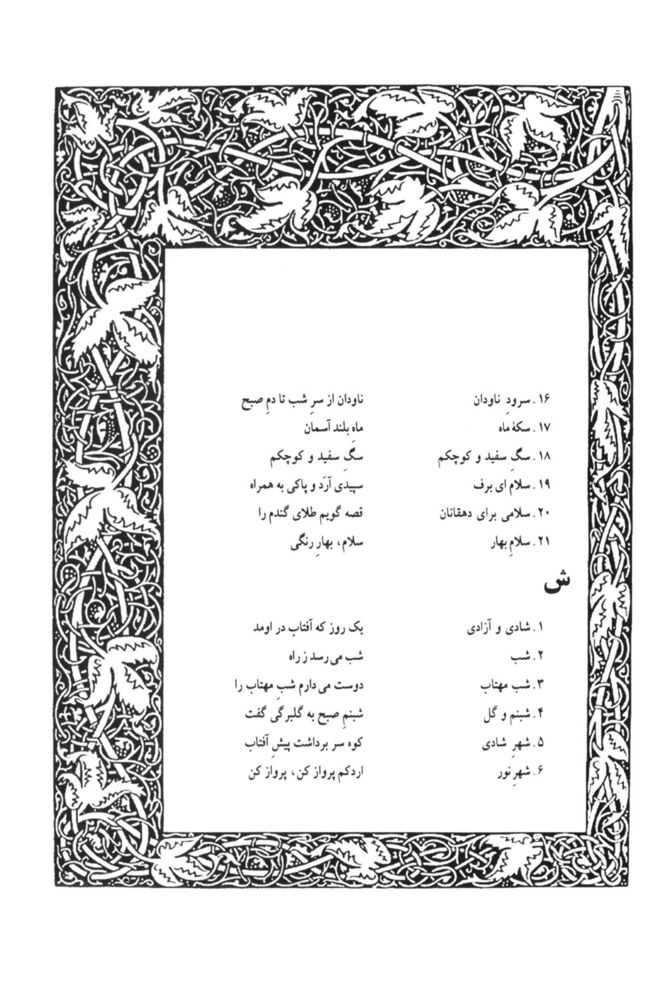 ۱۶. سرودِ ناودان ناودان از سرِ شب تا دمِ صبح
۱۷. سکهٔ ماه ماهِ بلند آسمان
۱۸. سگِ سفید و کوچکم سگِ سفید و کوچکم
۱۹. سلام ای برف سپیدی آرَد و پاکی به همراه
۲۰. سلامی برای دهقانان قصه گویم طلای گندم را
۲۱. سلامِ بهار سلام، بهارِ رنگی
ش
۱. شادی و آزادی یک روز که آفتاب در اومد
۲. شب شب می‌رسد ز راه
۳. شب مهتاب دوست می‌دارم شبِ مهتاب را
۴. شبنم و گل شبنمِ صبح به گلبرگی گفت
۵. شهرِ شادی کوه سر برداشت پیشِ آفتاب
۶. شهرِ نور اردکم پرواز کن، پرواز کن